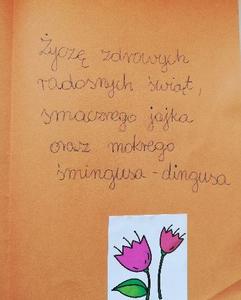 Życzę zdrowych
radosnych świąt,
smacznego jajka
oraz mokrego
śmingusa - dingusa